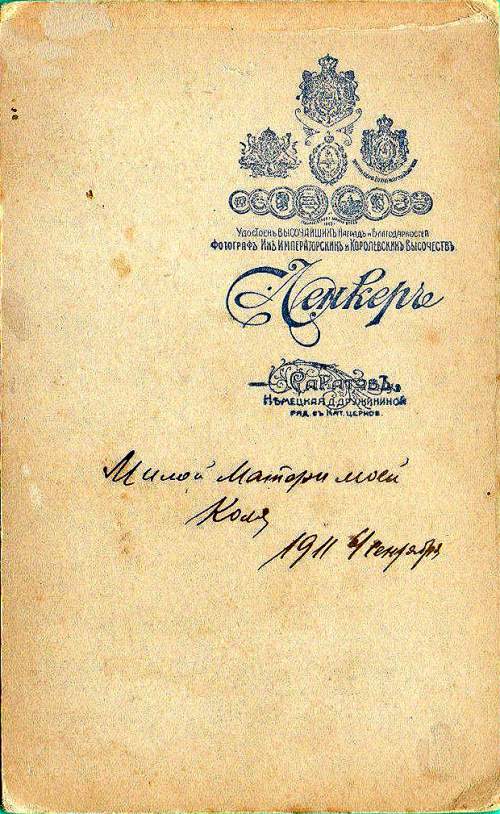 Удостоенъ высочайшихъ наградъ и благодарностей
фотографъ Ихъ Императорскихъ и Королевскихъ Высочествъ
Пенкеръ
Саратовъ.
Нѣмецкая д. Дружининой
ряд. съ Кат. церков.
Милой Матери моей
Коля
1911 6/Сентября